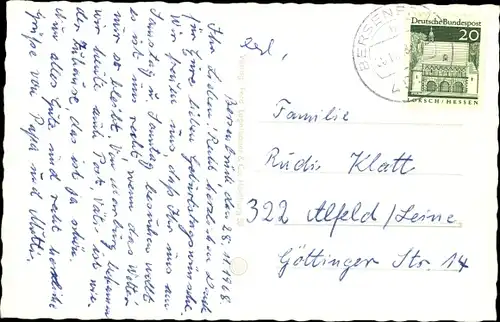 Bersenbrück den 28.11.1968.
Ihr Lieben! Recht herzlichen Dank
für Eure lieben Geburtstagswünsche.
Wir freuen uns, daß Ihr uns am
Samstag u. Sonntag besuchen wollt
es ist uns recht wenn das Wetter
nur so bleibt. Von
wir heute auch Post, Vati ist wieder
der Zuhause das ist ja schön.
Nun alles Gute und recht herzliche
Grüße von Papa und Mutti.
Verlag
Abs.,
BERSENBRÜCK
Deutsche Bundespost
20
LORSCH/HESSEN
Familie
Rudi Klatt
322 Alfeld/Leine
Göttinger Str. 14